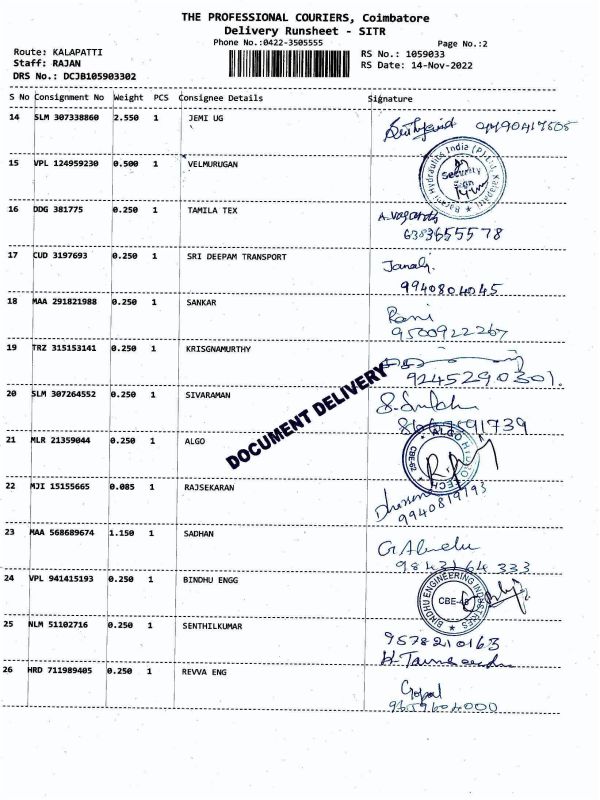 THE PROFESSIONAL COURIERS, Coimbatore
Delivery Runsheet - SITR
Phone No.:0422-3505555
Page No.:2
Route: KALAPATTI
RS No.: 1059033
Staff: RAJAN
RS Date: 14-Nov-2022
DRS No.: DCJB105903302
S No Consignment No Weight PCS Consignee Details Signature
14 SLM 307338860 2.550 1 JEMI UG
15 VPL 124959230 0.500 1 VELMURUGAN
Hydraulics India (P) Ltd, Kalapatti
Security
Sign
16 DDG 381775 0.250 1 TAMILA TEX
6383655578
17 CUD 3197693 0.250 1 SRI DEEPAM TRANSPORT
Janaki
9940804045
18 MAA 291821988 0.250 1 SANKAR
Rani
9500922267
19 TRZ 315153141 0.250 1 KRISGNAMURTHY
9245290301.
20 SLM 307264552 0.250 1 SIVARAMAN
DOCUMENT DELIVERY
21 MLR 21359044 0.250 1 ALGO
ALGO
CBE-62
TECH
22 MJI 15155665 0.085 1 RAJSEKARAN
23 MAA 568689674 1.150 1 SADHAN
9843164333
24 VPL 941415193 0.250 1 BINDHU ENGG
BINDHU ENGINEERING INDUSTRIES
CBE-48
25 NLM 51102716 0.250 1 SENTHILKUMAR
9578210163
26 HRD 711989405 0.250 1 REVVA ENG
Gopal